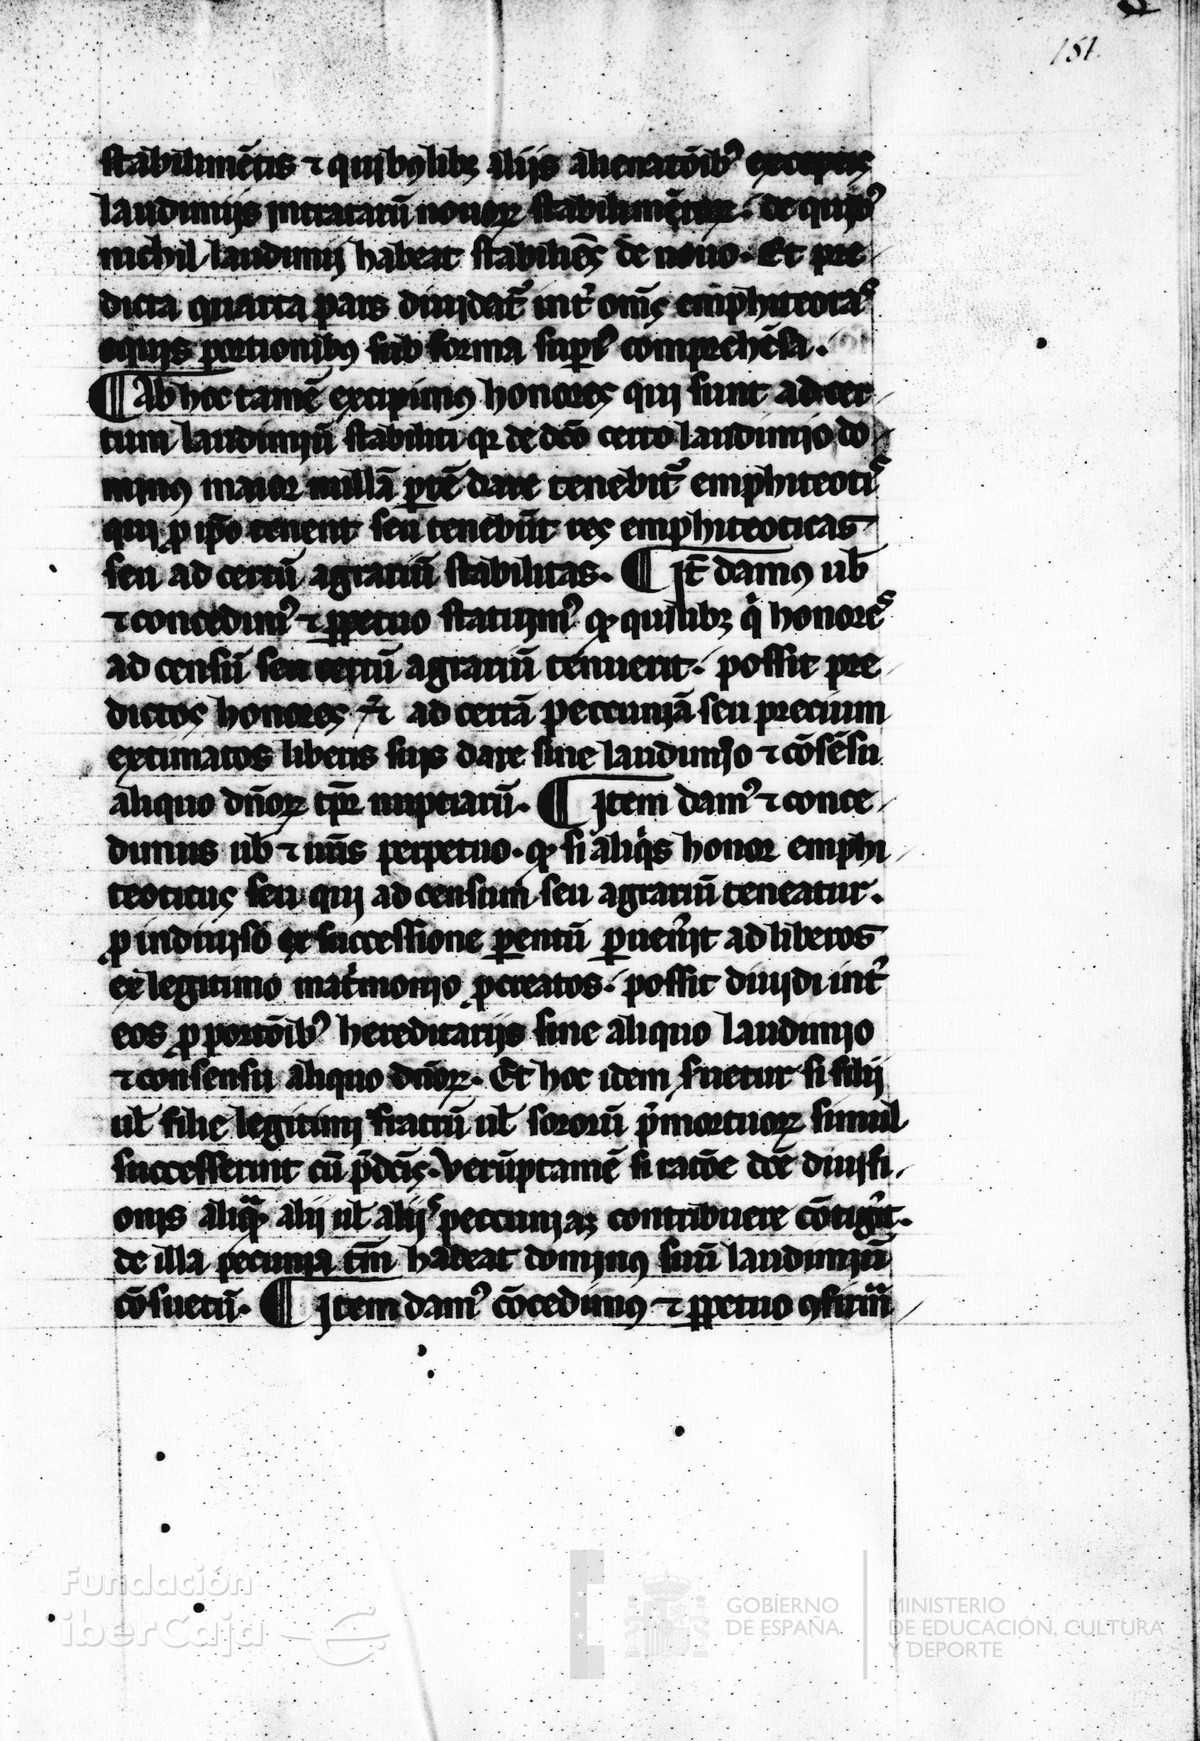 151.
stabilimētis ⁊ quibuslibꝫ aliis alienatōibꝰ exceptis
laudimiis intratarū nouoꝝ stabilimētoꝝ. de quibꝰ
nichil laudimij habeat stabiliēs de nouo. Et pre
dicta quarta pars diuidatᷣ intᷣ om̄s emphiteotas
equis portionibus sub forma supᷣ comprehēsa.
¶ Ab hoc tamē excipimus honores qui sunt ad cer
tum laudimiū stabiliti qꝛ de dc̄o certo laudimio do
minus maior nullā ꝑtē dare tenebitᷣ emphiteotis
qui ꝓ ip̄o tenent seu tenebūt res emphiteoticas
seu ad certū agrariū stabilitas. ¶ Itē damus ub̄
⁊ concedimꝰ ⁊ ꝑpetuo statuimꝰ ꝙ quilibꝫ qͥ honores
ad censū seu certū agrariū tenuerit. possit pre
dictos honores ad certā peccuniā seu precium
extimatos liberis suis dare sine laudimio ⁊ cōsēsu
aliquo dn̄oꝝ tp̄r nuptiarū. ¶ Item damꝰ ⁊ conce
dimus ub̄ ⁊ ur̄is perpetuo. ꝙ si aliqͥs honor emphi
teoticus seu qui ad censum seu agrariū teneatur.
ꝓ indiuiso ex successione ꝑentū ꝑuenᷣit ad liberos
ex legitimo matͥmonio ꝓcreatos. possit diuidi intᷣ
eos ꝓ portōibꝰ hereditariis sine aliquo laudimio
⁊ consensu aliquo dn̄oꝝ. Et hoc idem sᷣuetur si filij
ul̓ filie legitimi fratrū ul̓ sororū pᷣmortuoꝝ simul
successerint cū p̄dc̄is. Verūptamē si racōe dc̄e diuisi
onis aliqͣ alii ul̓ aliis peccuniaꝫ contribuere cōtigᷣit.
de illa pecunia tm̄ habeat dominus suū laudimiū
cōsuetū. ¶ Item damꝰ cōcedimus ⁊ ꝑpetuo ꝯfirmͣ
Fundación
iberCaja
GOBIERNO
DE ESPAÑA
MINISTERIO
DE EDUCACIÓN, CULTURA
Y DEPORTE